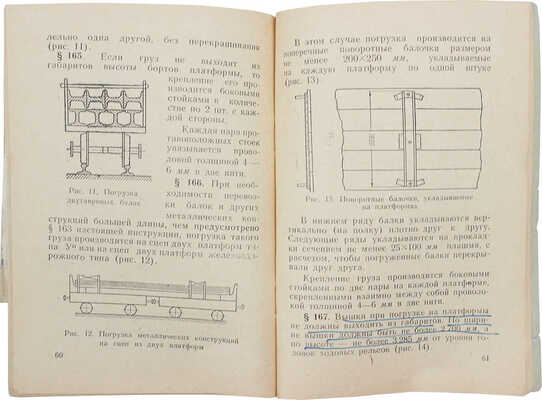 дельно одна другой, без перекрашивания
(рис. 11).
§ 165. Если груз не выходит из
габаритов высоты бортов платформы, то
крепление его про-
изводится боковыми
стойками в количе-
стве по 2 шт. с каж-
дой стороны.
Каждая пара про-
тивоположных стоек
увязывается прово-
локой толщиной 4—
6 мм в две нити.
§ 166. При необ-
ходимости перевоз-
ки балок и других
металлических кон-
Рис. 11. Погрузка
двутавровых балок
струкций большей длины, чем предусмотрено
§ 163 настоящей инструкции, погрузка такого
груза производится на сцеп двух платформ ти-
па или на сцеп двух платформ железнодо-
рожного типа (рис. 12).
Рис. 12. Погрузка металлических конструкций
на сцеп из двух платформ
60
В этом случае погрузка производится на
поперечные поворотные балочки размером
не менее 200×250 мм, укладываемые
на каждую платформу по одной штуке
(рис. 13)
Рис. 13. Поворотные балочки, укладываемые
на платформы
В нижнем ряду балки укладываются вер-
тикально (на полку) плотно друг к другу.
Следующие ряды укладываются на проклад-
ки сечением не менее 25×100 мм плашмя, с
расчетом, чтобы погруженные балки перекры-
вали друг друга.
Крепление груза производится боковыми
стойками по две пары на каждой платформе,
скрепленными взаимно между собой проволо-
кой толщиной 4—6 мм в две нити.
§ 167. Вышки при погрузке на платформы
не должны выходить из габаритов. По шири-
не вышки должны быть не более 2 700 мм, а
по высоте — не более 3 285 мм от уровня го-
ловок ходовых рельсов (рис. 14).
61